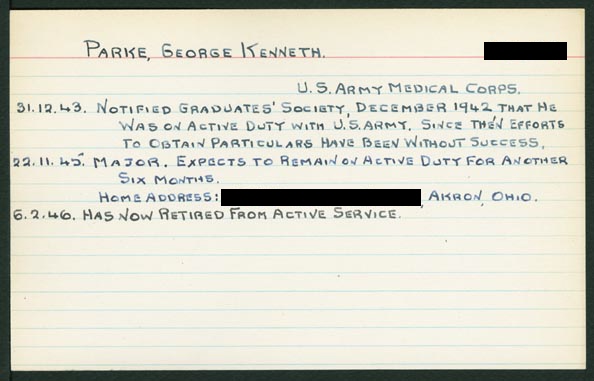 PARKE, GEORGE KENNETH.
U.S. ARMY MEDICAL CORPS.
31.12.43. NOTIFIED GRADUATES' SOCIETY, DECEMBER 1942 THAT HE
WAS ON ACTIVE DUTY WITH U.S. ARMY. SINCE THEN EFFORTS
TO OBTAIN PARTICULARS HAVE BEEN WITHOUT SUCCESS.
22.11.45. MAJOR. EXPECTS TO REMAIN ON ACTIVE DUTY FOR ANOTHER
SIX MONTHS.
HOME ADDRESS: , AKRON, OHIO.
6.2.46. HAS NOW RETIRED FROM ACTIVE SERVICE.